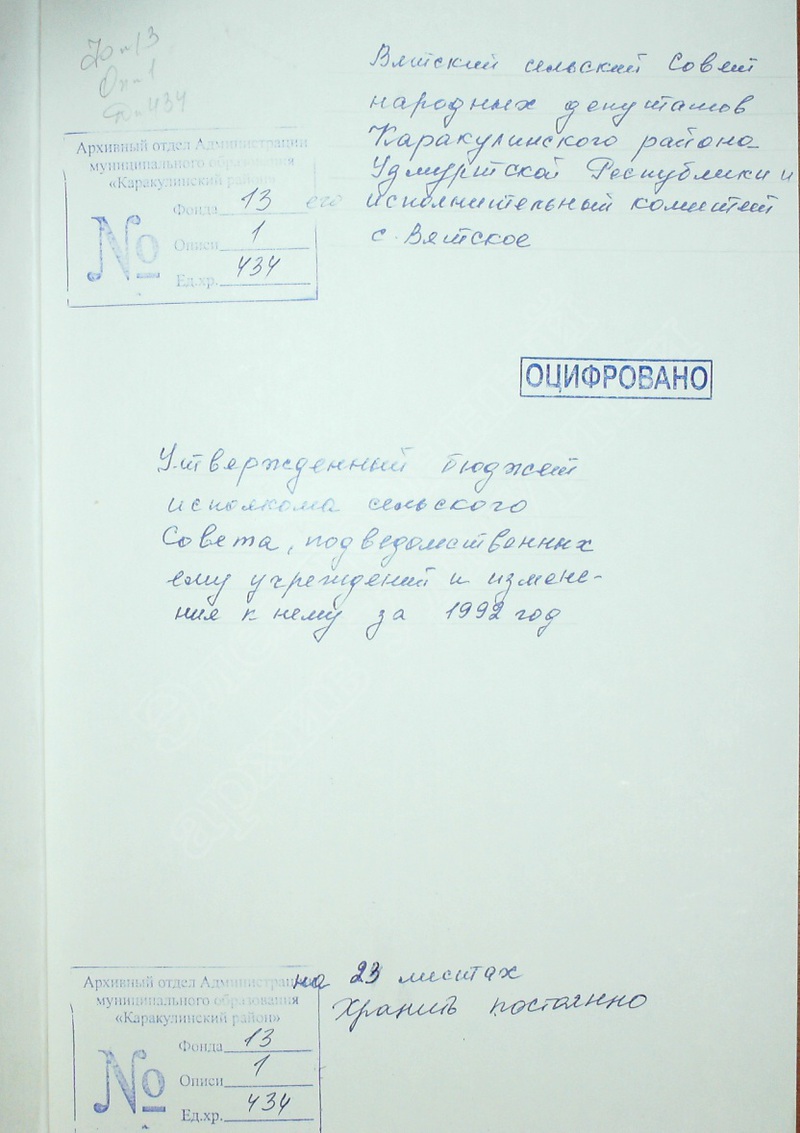 Ф-13
Оп-1
Д-434
Вятский сельский Совет
народных депутатов
Каракулинского района
Удмуртской Республики и
его исполнительный комитет
с. Вятское
Архивный отдел Администрации
муниципального образования
«Каракулинский район»
№
Фонда 13
Описи 1
Ед.хр. 434
ОЦИФРОВАНО
Утвержденный бюджет
исполкома сельского
Совета, подведомственных
ему учреждений и измене-
ния к нему за 1992 год
на 23 листах
Хранить постоянно
Архивный отдел Администрации
муниципального образования
«Каракулинский район»
№
Фонда 13
Описи 1
Ед.хр. 434